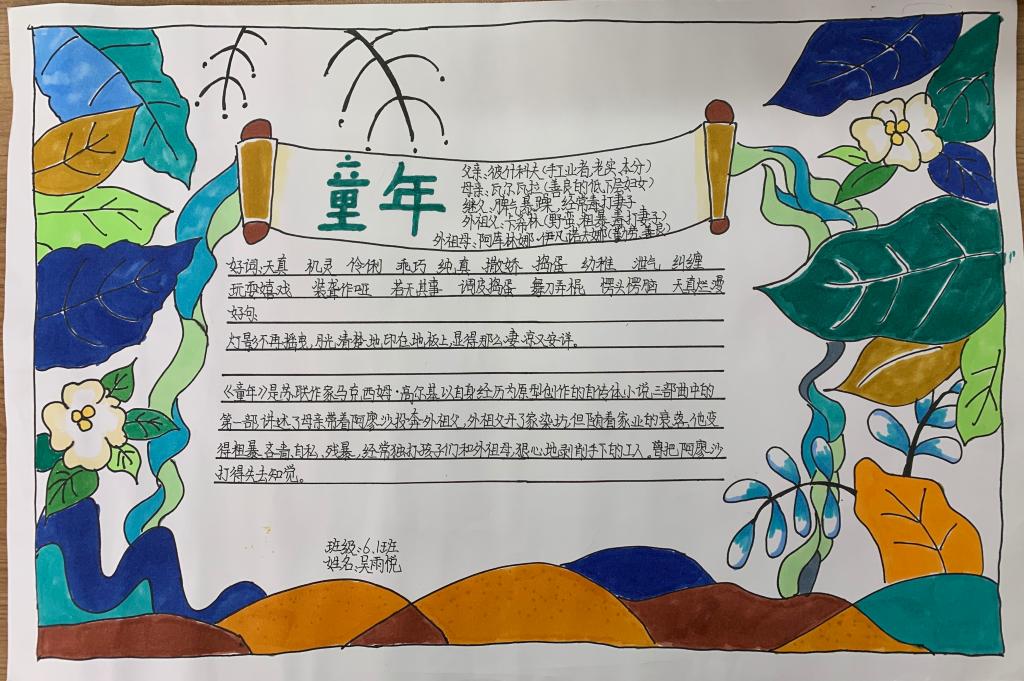 童年
父亲:彼什科夫(手工业者,老实,本分)
母亲:瓦尔瓦拉(善良的低下层妇女)
继父:脾气暴躁,经常毒打妻子
外祖父:卡希林(野蛮,粗暴,毒打妻子)
外祖母:阿库林娜·伊凡诺夫娜(勤劳,善良)
好词:天真 机灵 伶俐 乖巧 纯真 撒娇 捣蛋 幼稚 泄气 纠缠
玩耍嬉戏 装聋作哑 若无其事 调皮捣蛋 舞刀弄棍 愣头愣脑 天真烂漫
好句:
灯影不再摇曳,月光清楚地印在地板上,显得那么凄凉又安详。
《童年》是苏联作家马克西姆·高尔基以自身经历为原型创作的自传体小说三部曲中的
第一部,讲述了母亲带着阿廖沙投奔外祖父,外祖父开了家染坊,但随着家业的衰落,他变
得粗暴、吝啬、自私、残暴,经常独打孩子们和外祖母,狠心地剥削手下的工人,曾把阿廖沙
打得失去知觉。
班级:6.1班
姓名:吴雨悦